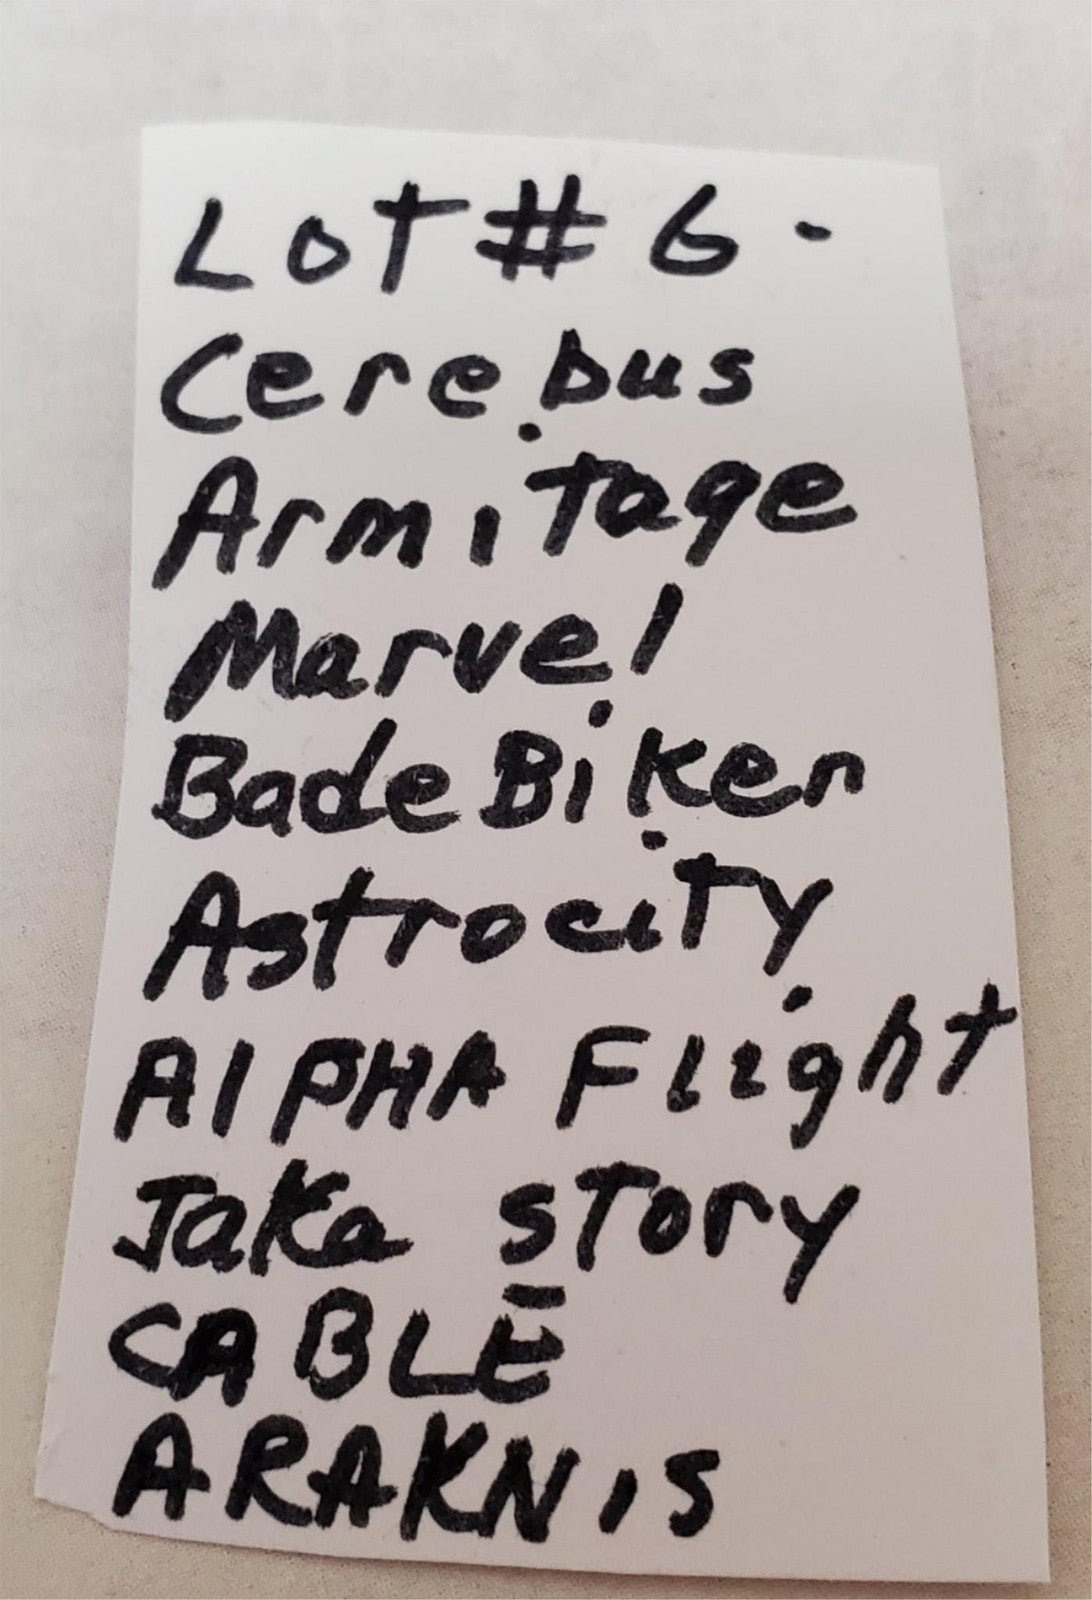 Lot # 6 -
Cerebus
Armitage
Marvel
Bade Biker
Astrocity
AlPHA Flight
Jake story
CABLE
ARAKNIS